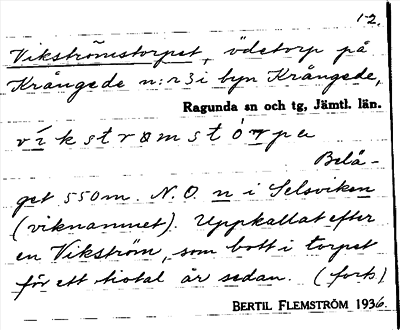 1-2.
Vikströmstorpet, ödetorp på
Krångede n:r 3 i byn Krångede,
Ragunda sn och tg, Jämtl. län.
víkstrømstórpe
Belä-
get 550 m. N.O. n i Selsviken
(viknamnet). Uppkallat efter
en Vikström, som bott i torpet
för ett tiotal år sedan. (forts)
BERTIL FLEMSTRÖM 1936.